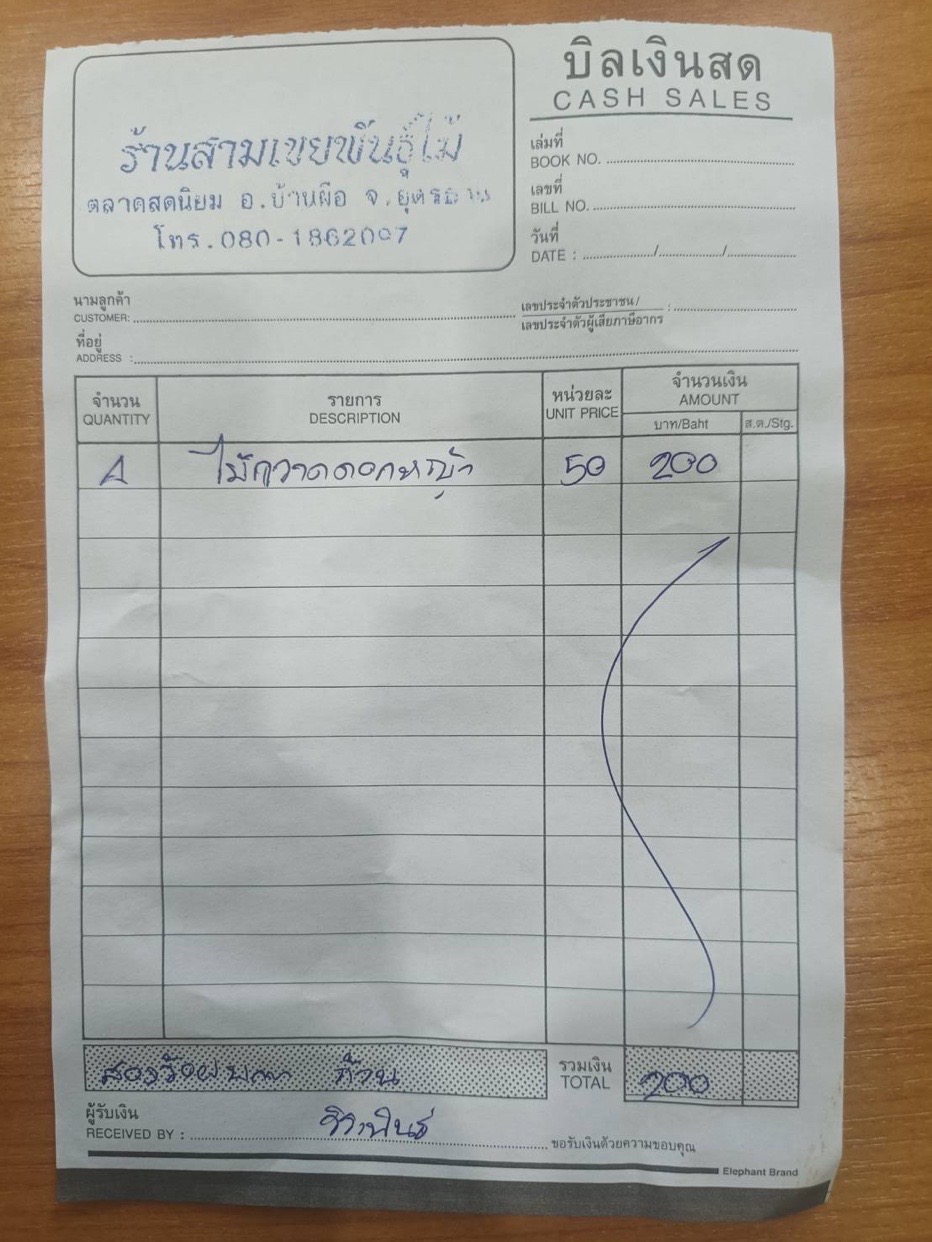 บิลเงินสด
CASH SALES
ร้านสามเขยพันธุ์ไม้
ตลาดสดนิยม อ.บ้านผือ จ.อุดรธานี
โทร.080-1862097
เล่มที่
BOOK NO.
เลขที่
BILL NO.
วันที่
DATE : / /
นามลูกค้า
CUSTOMER:
เลขประจำตัวประชาชน/
เลขประจำตัวผู้เสียภาษีอากร :
ที่อยู่
ADDRESS :
จำนวน รายการ หน่วยละ จำนวนเงิน
QUANTITY DESCRIPTION UNIT PRICE AMOUNT
บาท/Baht ส.ต./Stg.
4 ไม้กวาดดอกหญ้า 50 200
สองร้อยบาท ถ้วน
รวมเงิน
TOTAL 200
ผู้รับเงิน
RECEIVED BY :
ขอรับเงินด้วยความขอบคุณ
Elephant Brand